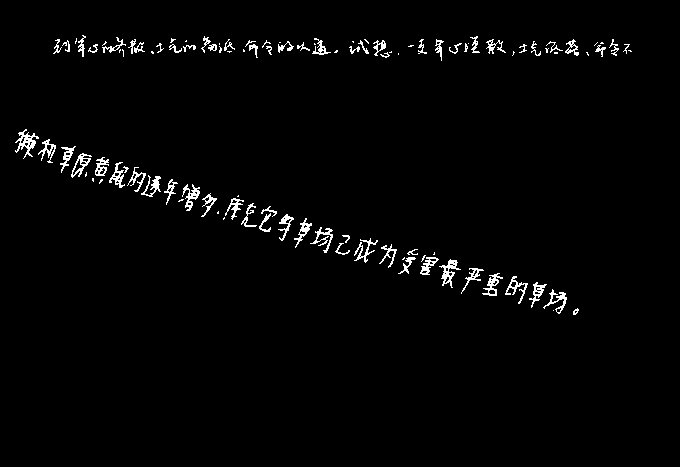 到军心的涣散、士气的低、命令的。试想,一支军心涣散,士气低落、命令不
獭和草原黄鼠的逐年增多,库克它乌草场已成为受害最严重的草场。